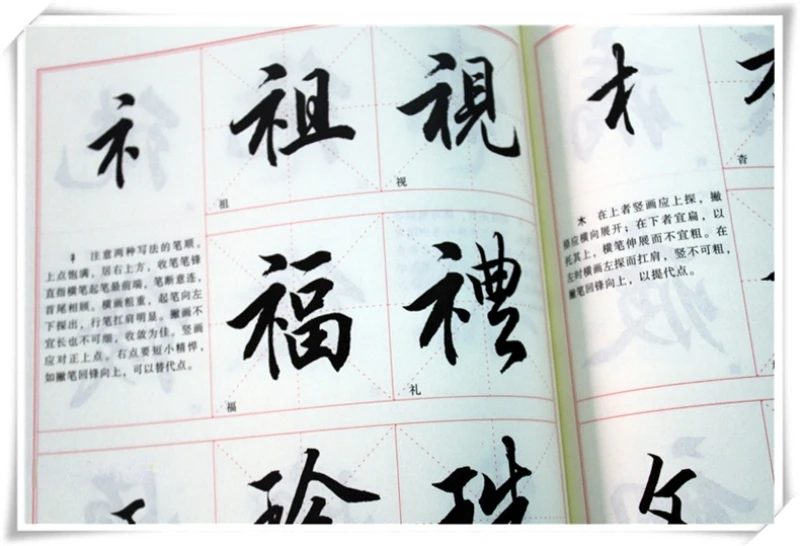 礻
祖
視
祖
视
礻 注意两种写法的笔顺。
上点饱满，居右上方，收笔笔锋
直指横笔起笔最前端，笔断意连，
首尾相顾。横画粗重，起笔向左
下探出，行笔扛肩明显。撇画不
宜长也不可细，收敛为佳。竖画
应对正上点。右点要短小精悍，
如撇笔回锋向上，可以替代点。
福
禮
福
礼
木 在上者竖画应上探，撇
捺应横向展开；在下者宜扁，以
托其上，横笔伸展而不宜粗。在
左时横画左探而扛肩，竖不可粗，
撇笔回锋向上，以提代点。